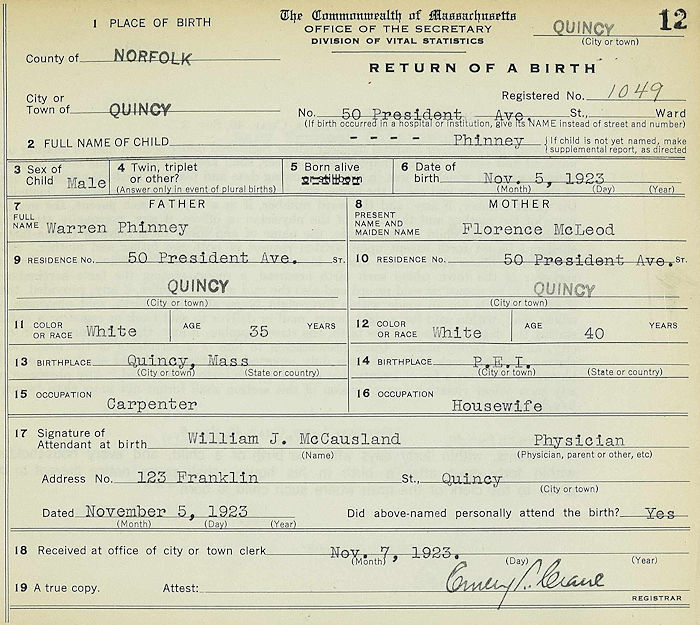 The Commonwealth of Massachusetts
OFFICE OF THE SECRETARY
DIVISION OF VITAL STATISTICS
RETURN OF A BIRTH
QUINCY
(City or town)
12
1 PLACE OF BIRTH
County of NORFOLK
Registered No. 1049
City or
Town of QUINCY
No. 50 President Ave. St., Ward
(If birth occurred in a hospital or institution, give its NAME instead of street and number)
2 FULL NAME OF CHILD - - - - Phinney { If child is not yet named, make
supplemental report, as directed
3 Sex of
Child Male
4 Twin, triplet
or other?
(Answer only in event of plural births)
5 Born alive
or stillborn
6 Date of
birth Nov. 5, 1923
(Month) (Day) (Year)
7 FATHER
FULL
NAME Warren Phinney
8 MOTHER
PRESENT
NAME AND
MAIDEN NAME Florence McLeod
9 RESIDENCE No. 50 President Ave. ST.
QUINCY
(City or town)
10 RESIDENCE No. 50 President Ave. ST.
QUINCY
(City or town)
11 COLOR
OR RACE White AGE 35 YEARS
12 COLOR
OR RACE White AGE 40 YEARS
13 BIRTHPLACE Quincy, Mass
(City or town) (State or country)
14 BIRTHPLACE P.E.I.
(City or town) (State or country)
15 OCCUPATION
Carpenter
16 OCCUPATION
Housewife
17 Signature of
Attendant at birth William J. McCausland Physician
(Name) (Physician, parent or other, etc)
Address No. 123 Franklin St., Quincy
(City or town)
Dated November 5, 1923 Did above-named personally attend the birth? Yes
(Month) (Day) (Year)
18 Received at office of city or town clerk Nov. 7, 1923.
(Month) (Day) (Year)
19 A true copy. Attest: Emery L. Crane
REGISTRAR